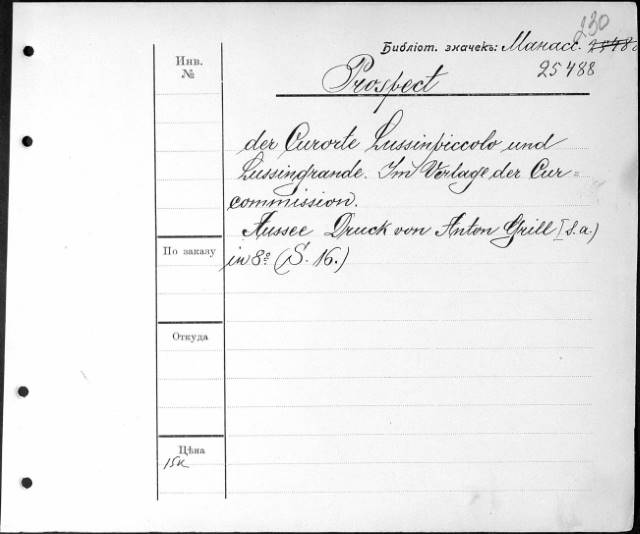 230
Библіот. значекъ: Манасс. 2548
25488
Prospect
Инв.
№
der Curorte Lussinpiccolo und
Lussingrande. Im Verlage der Cur=
commission.
Aussee Druck von Anton Grill [s.a.)
in 8º (S. 16.)
По заказу
Откуда
Цѣна
15к